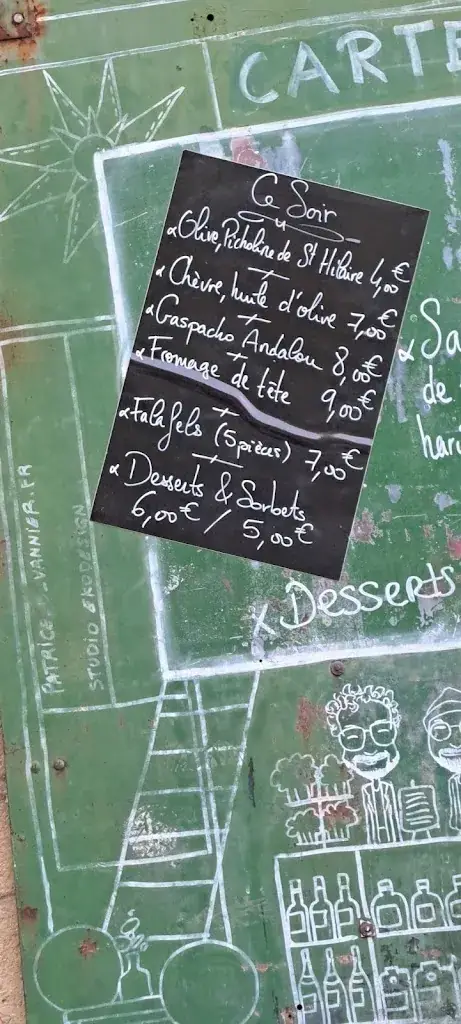 CARTE
Ce Soir
Olive, Picholine de St Hilaire 4,00€
Chèvre, huile d'olive 7,00€
Gaspacho Andalou 8,00€
Fromage de tête 9,00€
Falafels (5 pièces) 7,00€
Desserts & Sorbets
6,00€ / 5,00€
Sa
de
hari
x Desserts
PATRICE VANNIER.FR
STUDIO EKODESIGN